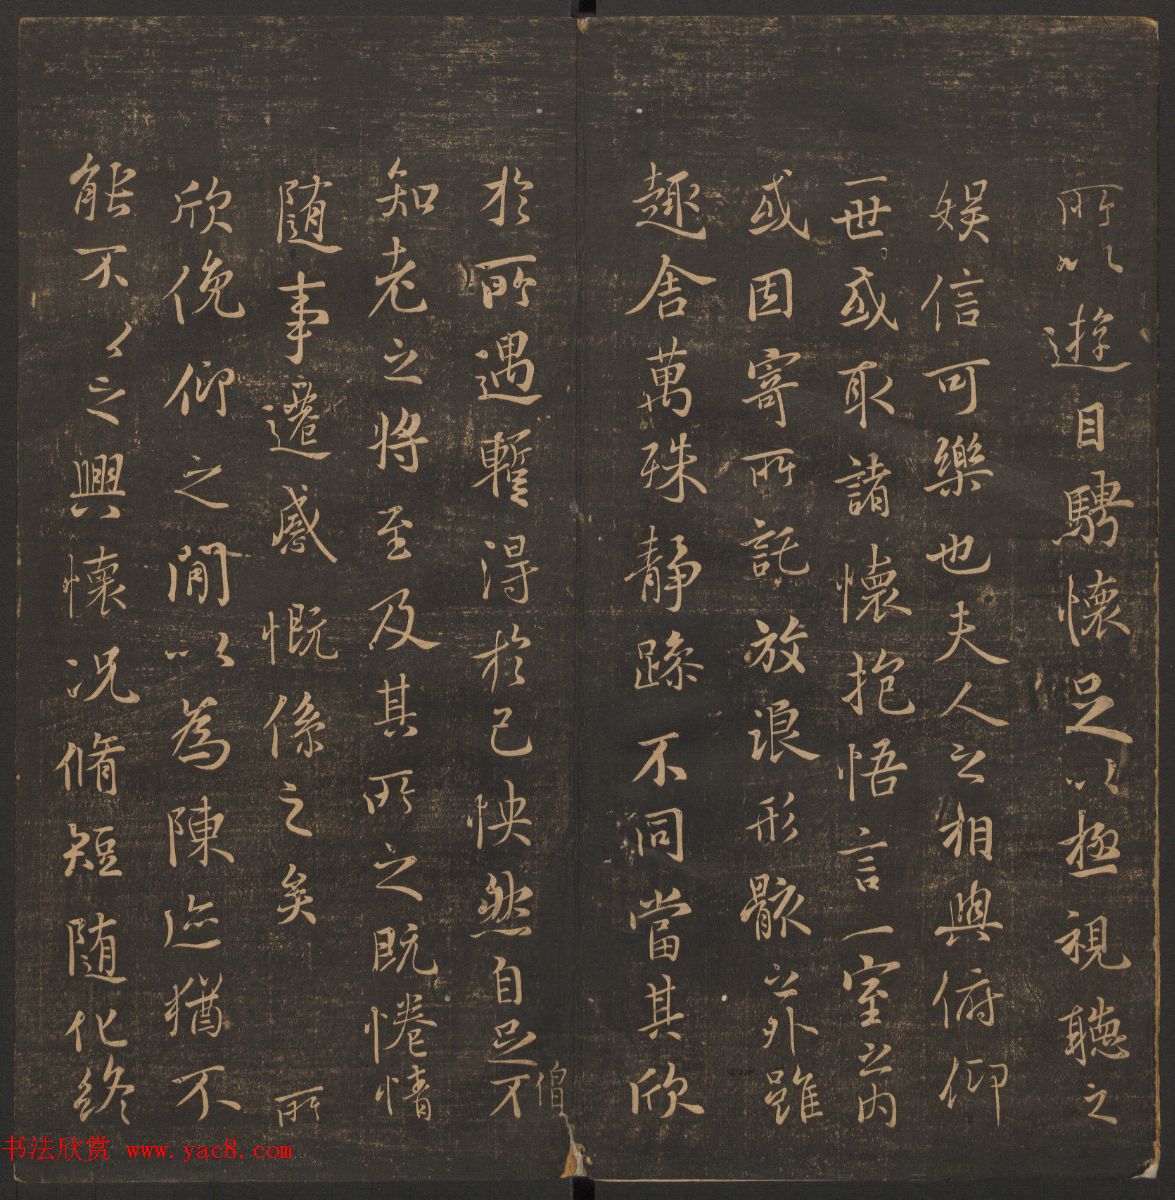 所以遊目騁懷足以極視聽之
娛信可樂也夫人之相與俯仰
一世或取諸懷抱悟言一室之內
或因寄所託放浪形骸之外雖
趣舍萬殊靜躁不同當其欣
於所遇蹔得於己怏然自足不
僧
知老之將至及其所之既惓情
隨事遷感慨係之矣 所
欣俛仰之閒以為陳迹猶不
能不以之興懷況脩短隨化終
书法欣赏 www.yac8.com